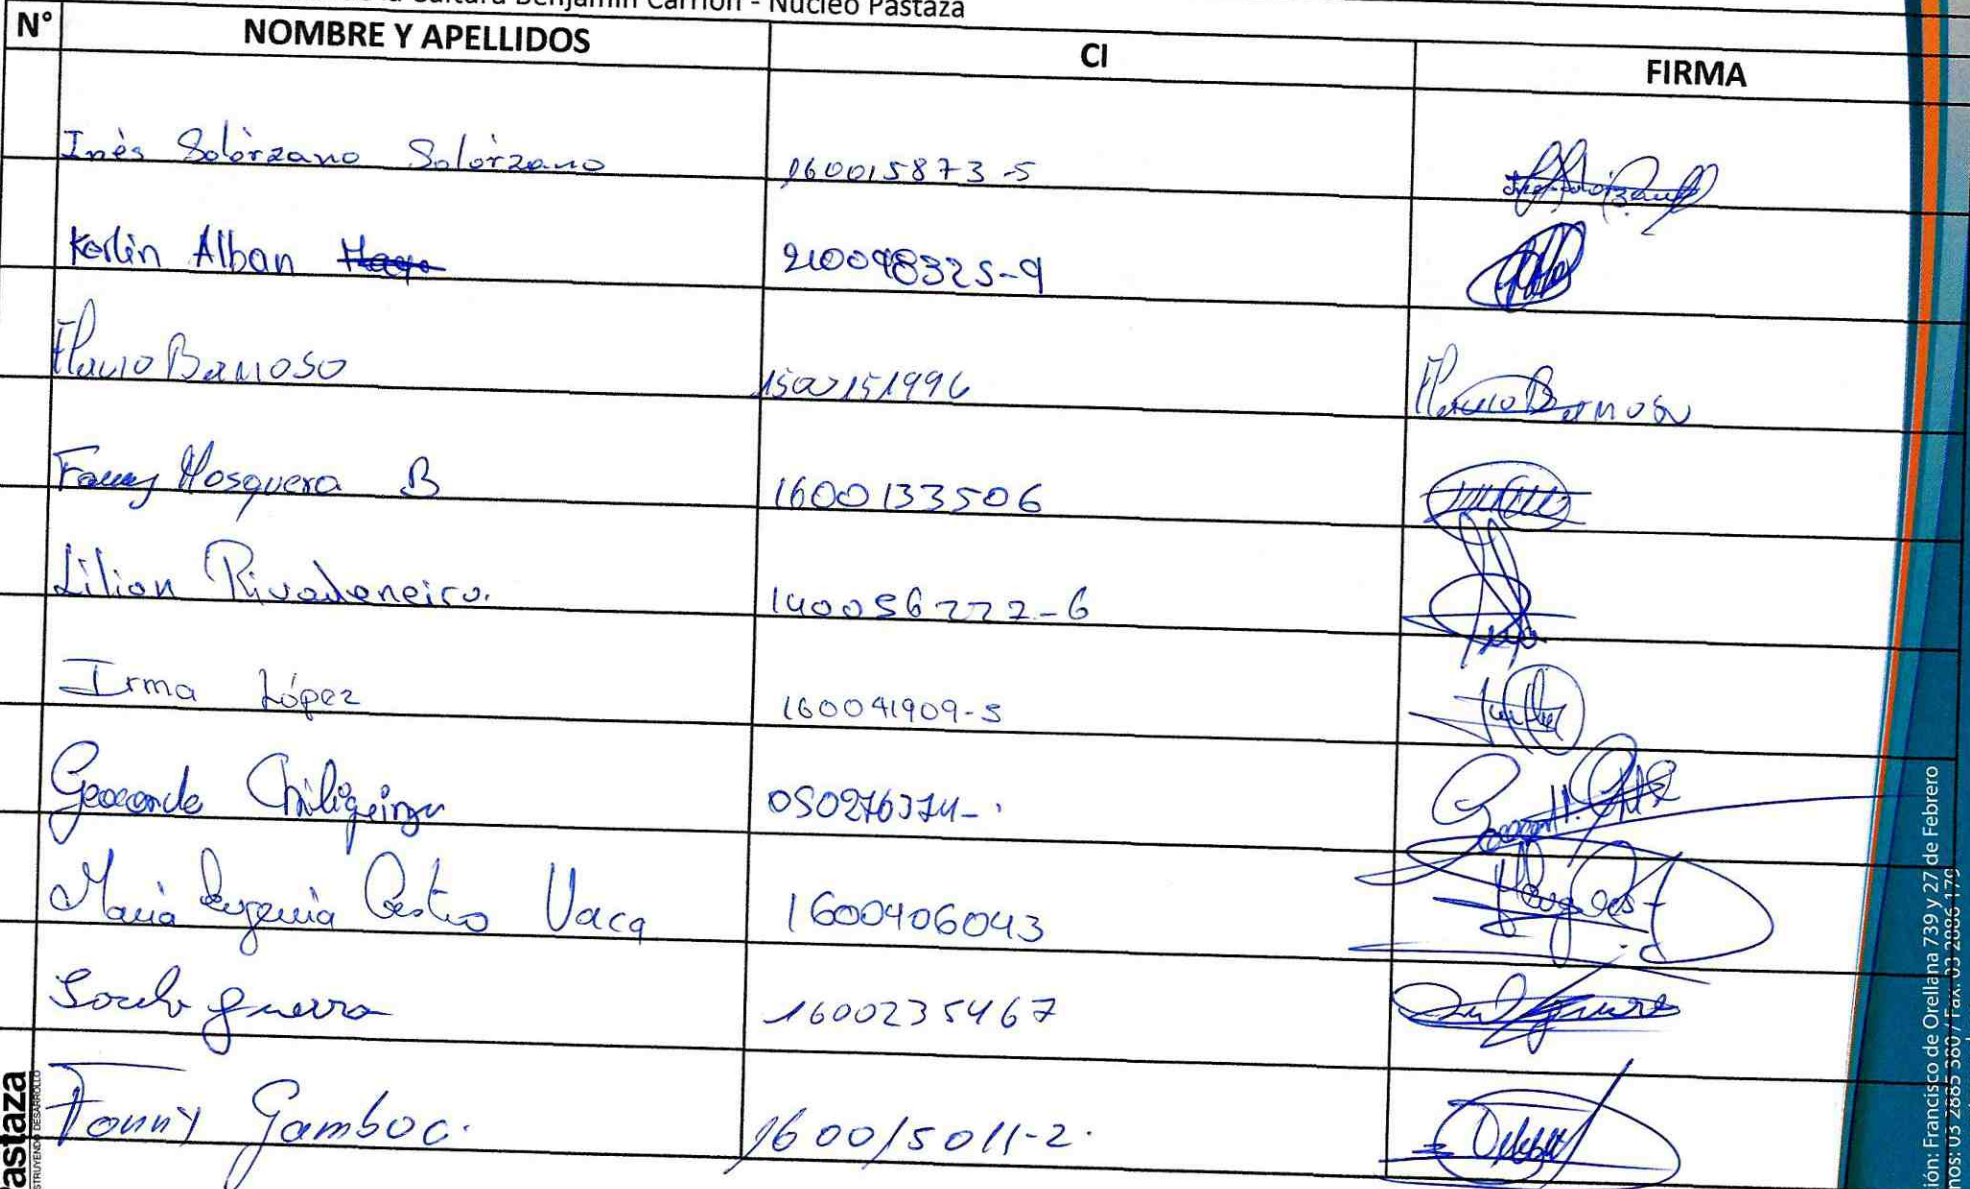 Cultura Benjamín Carrión - Núcleo Pastaza
N° NOMBRE Y APELLIDOS CI FIRMA
Inès Solòrzano Solórzano 160015873-5
Kerlin Alban 210098325-9
Flavio Barroso
Fanny Mosquera B 1600133506
Lilian Rivadeneira. 140056222-6
Irma López 160041909-5
Chiliqinga
Maria Eugenia Castro Vaca 1600406043
Guerra 1600235467
Fanny Gamboa. 160015011-2.
astaza
STRUYENDO DESARROLLO
ión: Francisco de Orellana 739 y 27 de Febrero
nos: 03 2885 380 / Fax: 03 2886 179